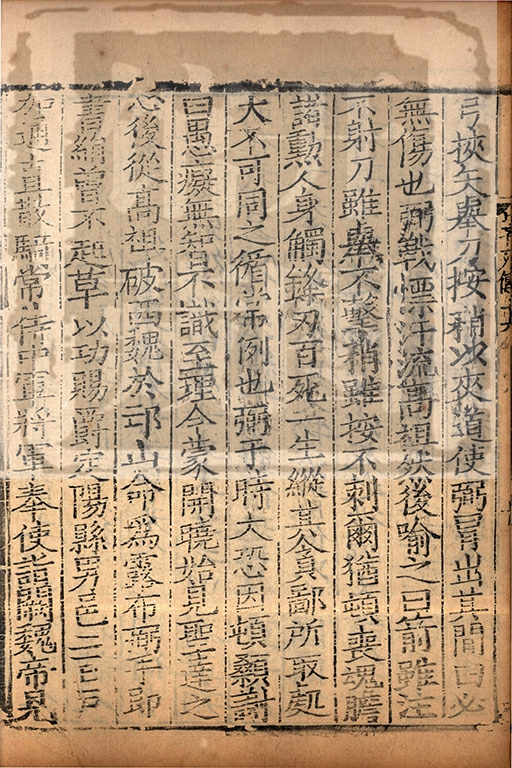 弓挾矢舉刀按稍以夾道使弼冒出其間曰必
無傷也弼戰慓汗流高祖然後喻之曰箭雖注
不射刀雖舉不擊稍雖按不刺爾猶頓喪魂膽
諸勲人身觸鋒刃百死一生縱其貪鄙所取處
大不可同之循常例也弼于時大恐因頓顙謝
曰愚癡無智不識至理今蒙開曉始見聖達之
心後從高祖破西魏於邙山命為露布弼手即
書絹曾不起草以功賜爵定陽縣男邑二百戶
加通直散騎常侍中軍將軍奉使詣闕魏帝見